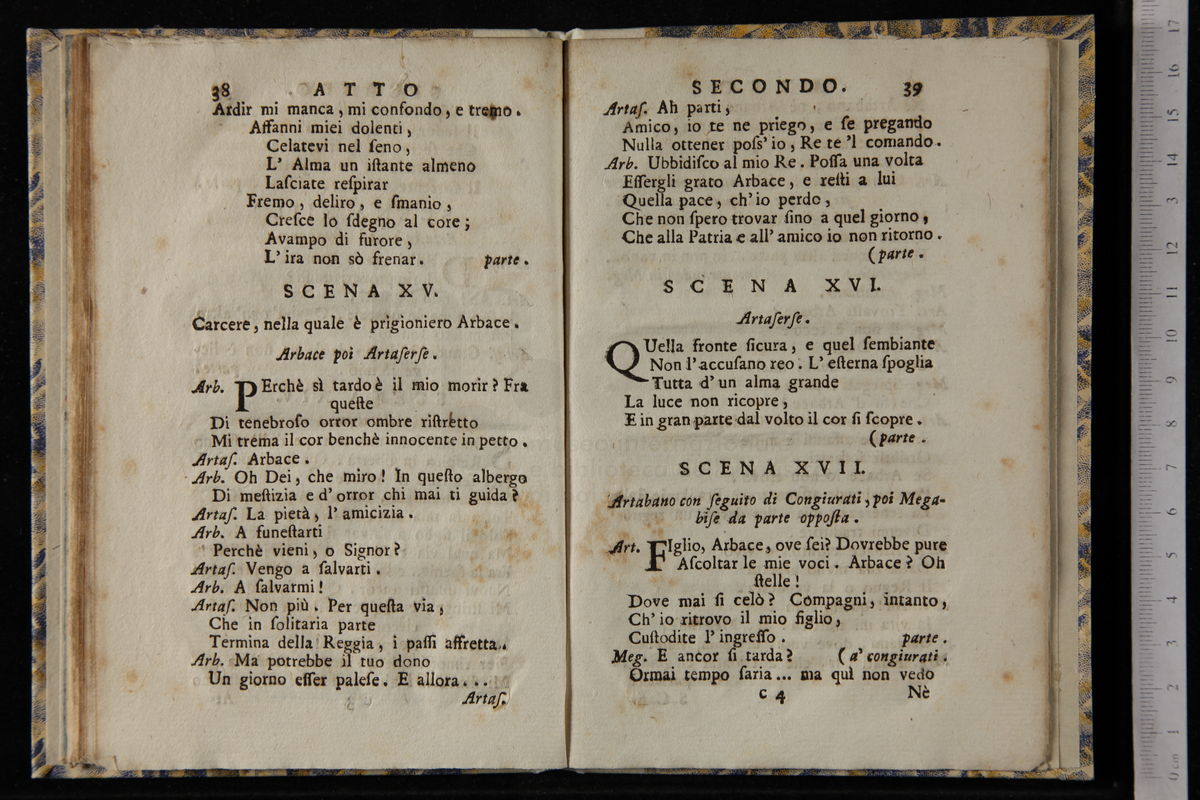 38 ATTO
Ardir mi manca, mi confondo, e tremo.
Affanni miei dolenti,
Celatevi nel ſeno,
L' Alma un iſtante almeno
Laſciate reſpirar
Fremo, deliro, e ſmanio,
Creſce lo ſdegno al core;
Avampo di furore,
L' ira non sò frenar. parte.
SCENA XV.
Carcere, nella quale è prigioniero Arbace.
Arbace poi Artaſerſe.
Arb. PErchè sì tardo è il mio morir? Fra
queſte
Di tenebroſo orror ombre riſtretto
Mi trema il cor benchè innocente in petto.
Artaſ. Arbace.
Arb. Oh Dei, che miro! In queſto albergo
Di meſtizia e d' orror chi mai ti guida?
Artaſ. La pietà, l' amicizia.
Arb. A funeſtarti
Perchè vieni, o Signor?
Artaſ. Vengo a ſalvarti.
Arb. A ſalvarmi!
Artaſ. Non più. Per queſta via,
Che in ſolitaria parte
Termina della Reggia, i paſſi affretta.
Arb. Ma potrebbe il tuo dono
Un giorno eſſer paleſe. E allora...
Artaſ.
SECONDO. 39
Artaſ. Ah parti,
Amico, io te ne priego, e ſe pregando
Nulla ottener poſs' io, Re te 'l comando.
Arb. Ubbidiſco al mio Re. Poſſa una volta
Eſſergli grato Arbace, e reſti a lui
Quella pace, ch' io perdo,
Che non ſpero trovar ſino a quel giorno,
Che alla Patria e all' amico io non ritorno.
(parte.
SCENA XVI.
Artaſerſe.
QUella fronte ſicura, e quel ſembiante
Non l' accuſano reo. L' eſterna ſpoglia
Tutta d' un alma grande
La luce non ricopre,
E in gran parte dal volto il cor ſi ſcopre.
(parte.
SCENA XVII.
Artabano con ſeguito di Congiurati, poi Mega-
biſe da parte oppoſta.
Art. FIglio, Arbace, ove ſei? Dovrebbe pure
Aſcoltar le mie voci. Arbace? Oh
ſtelle!
Dove mai ſi celò? Compagni, intanto,
Ch' io ritrovo il mio figlio,
Cuſtodite l' ingreſſo. parte.
Meg. E ancor ſi tarda? (a' congiurati.
Ormai tempo ſaria... ma quì non vedo
C 4 Nè
17
16
15
14
3
12
11
10
9
8
7
6
5
4
3
2
1
0 cm